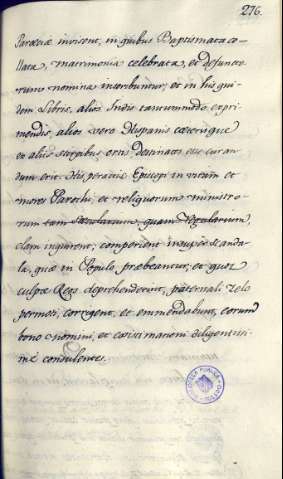 276.
Paraeciae invisent, in quibus Baptismata co-
llata, matrimonia celebrata, et defuncto
rum nomina inscribuntur, et in his qui-
dem Libris, alios Indis tantummodo expri-
mendis, alios vero Hispanis caeterisque
ex aliis stirpibus ortis destinatos esse curan-
dum erit. His peractis Episcopi in vitam et
mores Parochi, et reliquorum ministro-
rum tam Secularium quam Regularium,
clam inquirent; comperient insuper scanda-
la, quae in Populo praebeantur, et quos
culpae Reos deprehenderint, paternali zelo
permoti, corrigent, et emmendabunt, eorum
bono nomini, et existimationi diligentissi-
me consulentes.